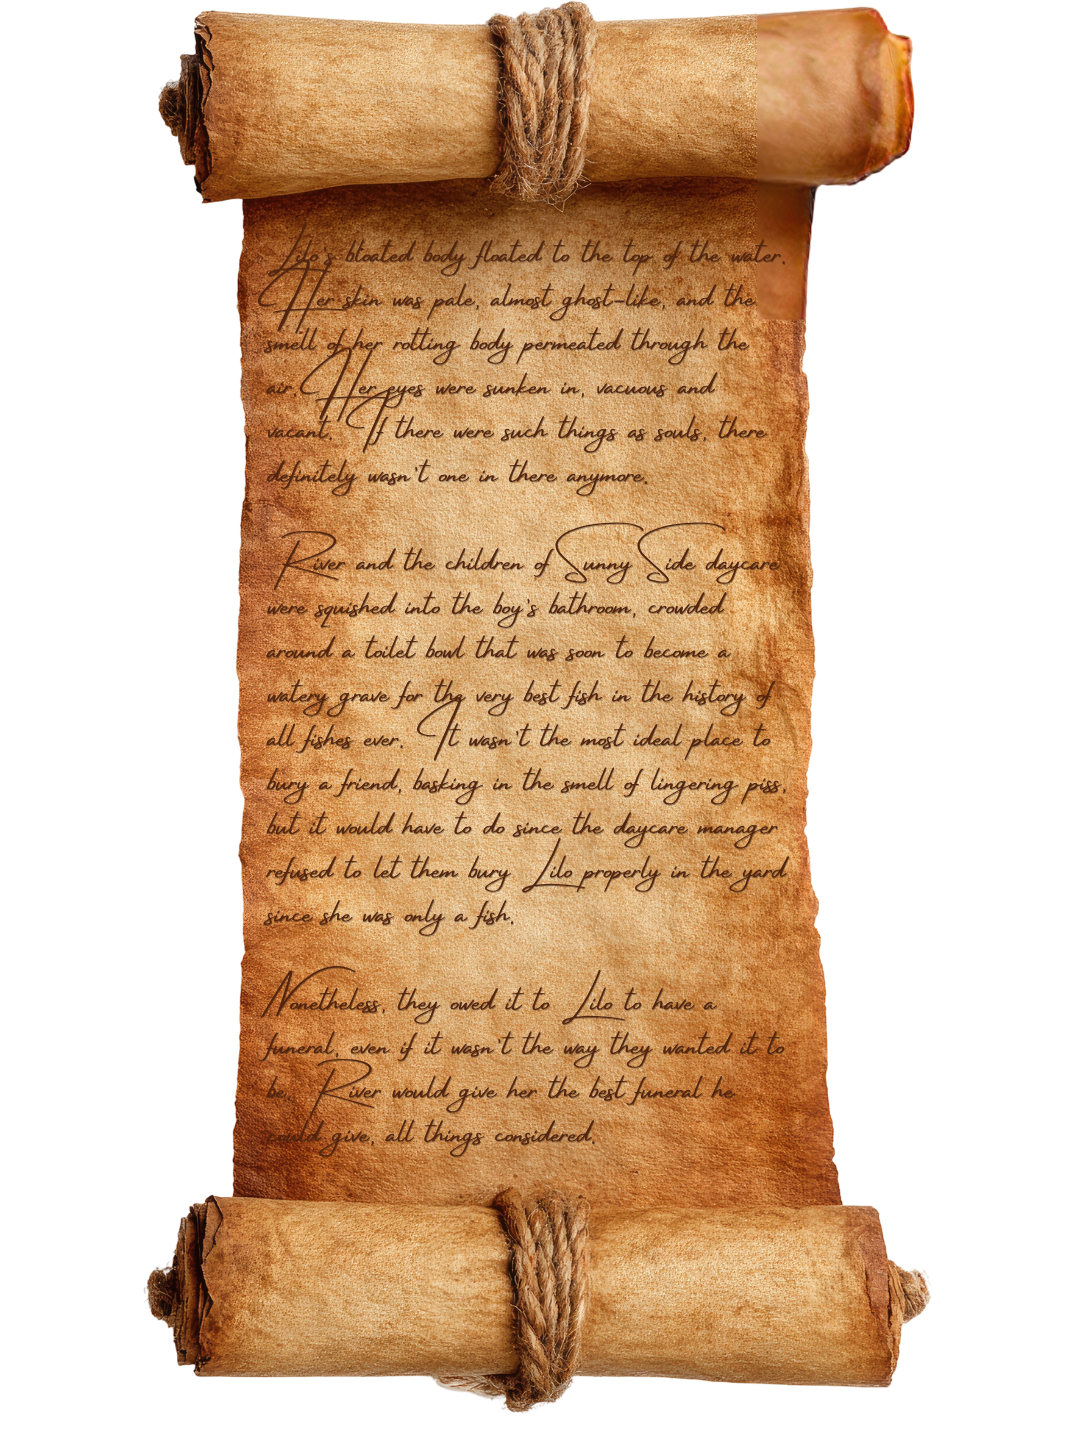 Lilo's bloated body floated to the top of the water.
Her skin was pale, almost ghost-like, and the
smell of her rotting body permeated through the
air. Her eyes were sunken in, vacuous and
vacant. If there were such things as souls, there
definitely wasn't one in there anymore.
River and the children of Sunny Side daycare
were squished into the boy's bathroom, crowded
around a toilet bowl that was soon to become a
watery grave for the very best fish in the history of
all fishes ever. It wasn't the most ideal place to
bury a friend, basking in the smell of lingering piss,
but it would have to do since the daycare manager
refused to let them bury Lilo properly in the yard
since she was only a fish.
Nonetheless, they owed it to Lilo to have a
funeral, even if it wasn't the way they wanted it to
be. River would give her the best funeral he
could give, all things considered.